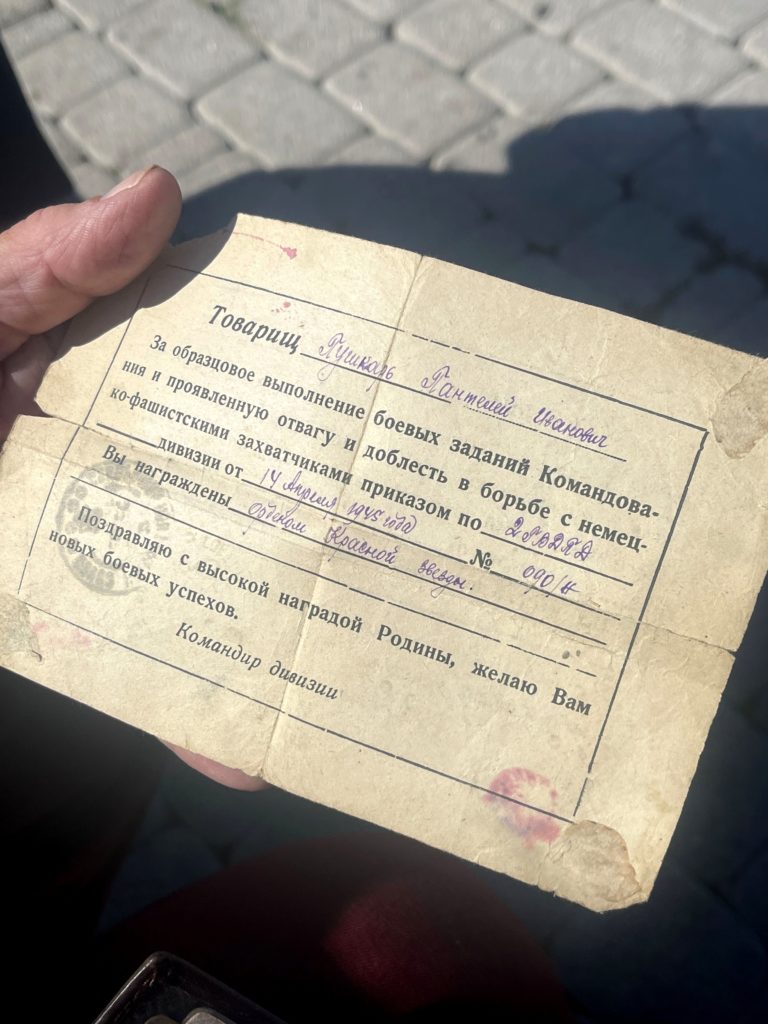 Товарищ Пушкарь Пантелей Иванович
За образцовое выполнение боевых заданий Командова-
ния и проявленную отвагу и доблесть в борьбе с немец-
ко-фашистскими захватчиками приказом по
дивизии от 14 Апреля 1945 года № 090/н
Вы награждены орденом Красной звезды.
Поздравляю с высокой наградой Родины, желаю Вам
новых боевых успехов.
Командир дивизии